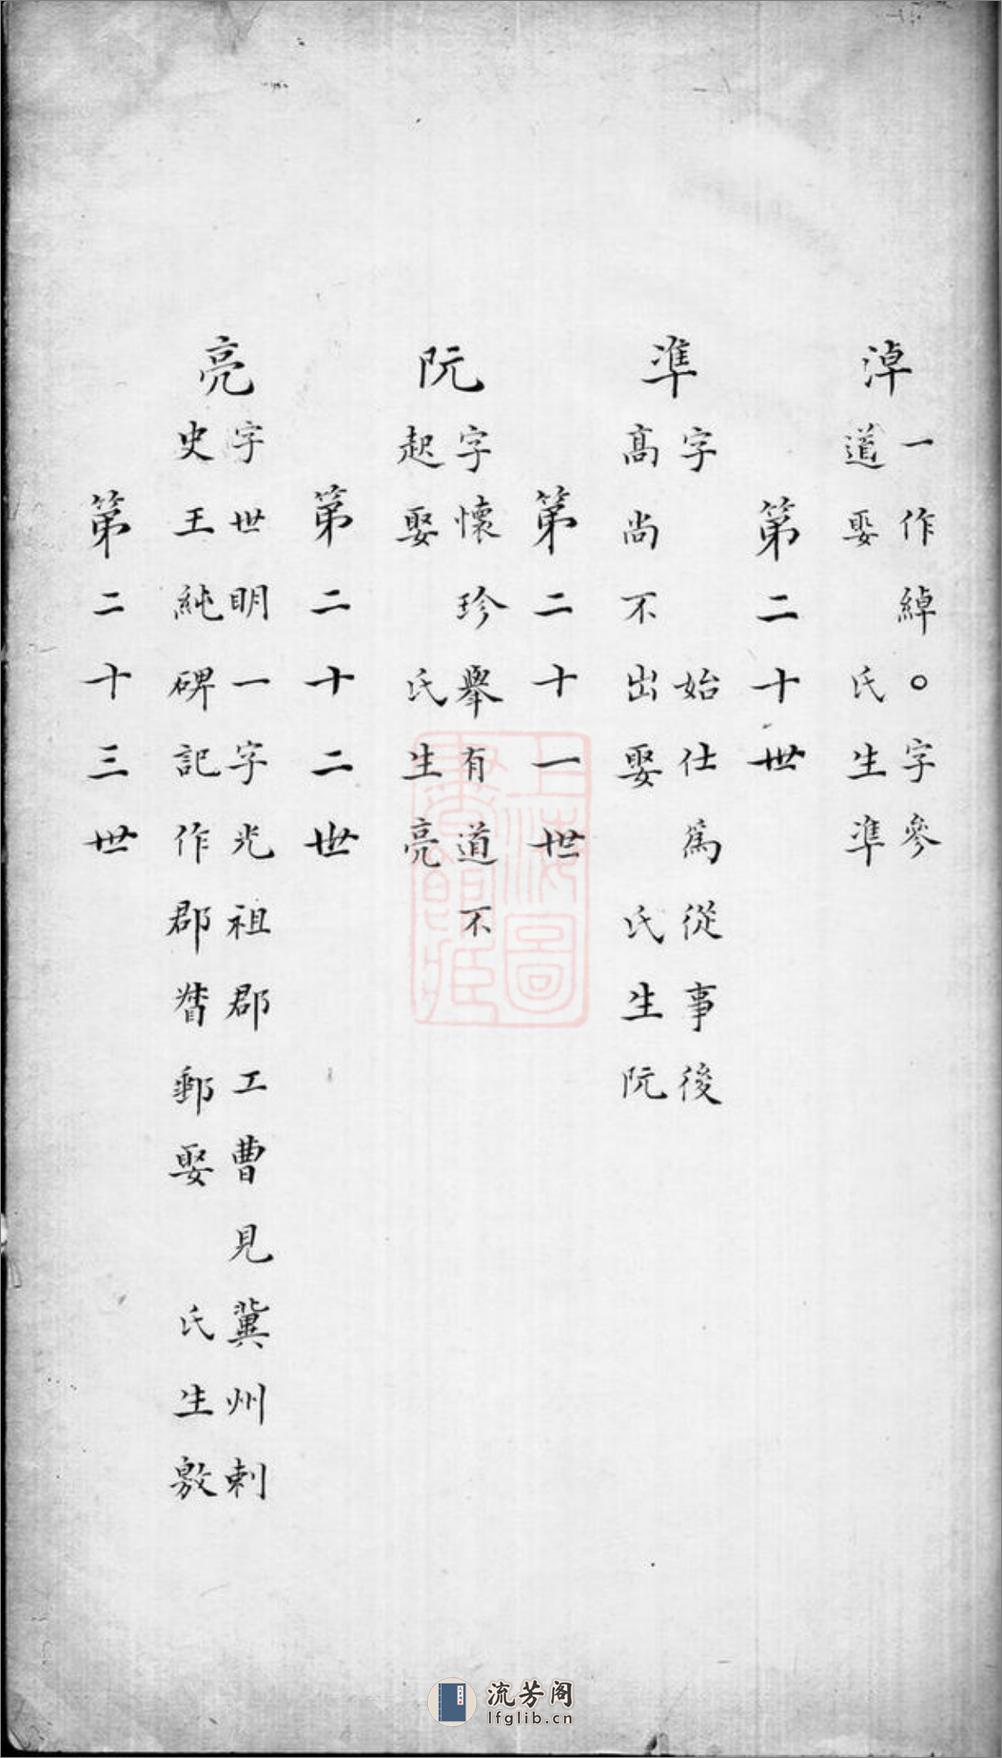 淖
一作綽。字參
道娶　氏生準
第二十世
準
字　　始仕爲從事後
高尚不出娶　氏生阮
第二十一世
阮
字懷珍舉有道不
起娶　氏生亮
第二十二世
亮
字世明一字光祖郡工曹見冀州刺
史王純碑記作郡督郵娶　氏生敫
第二十三世
上海圖書館藏
流芳阁
lfglib.cn